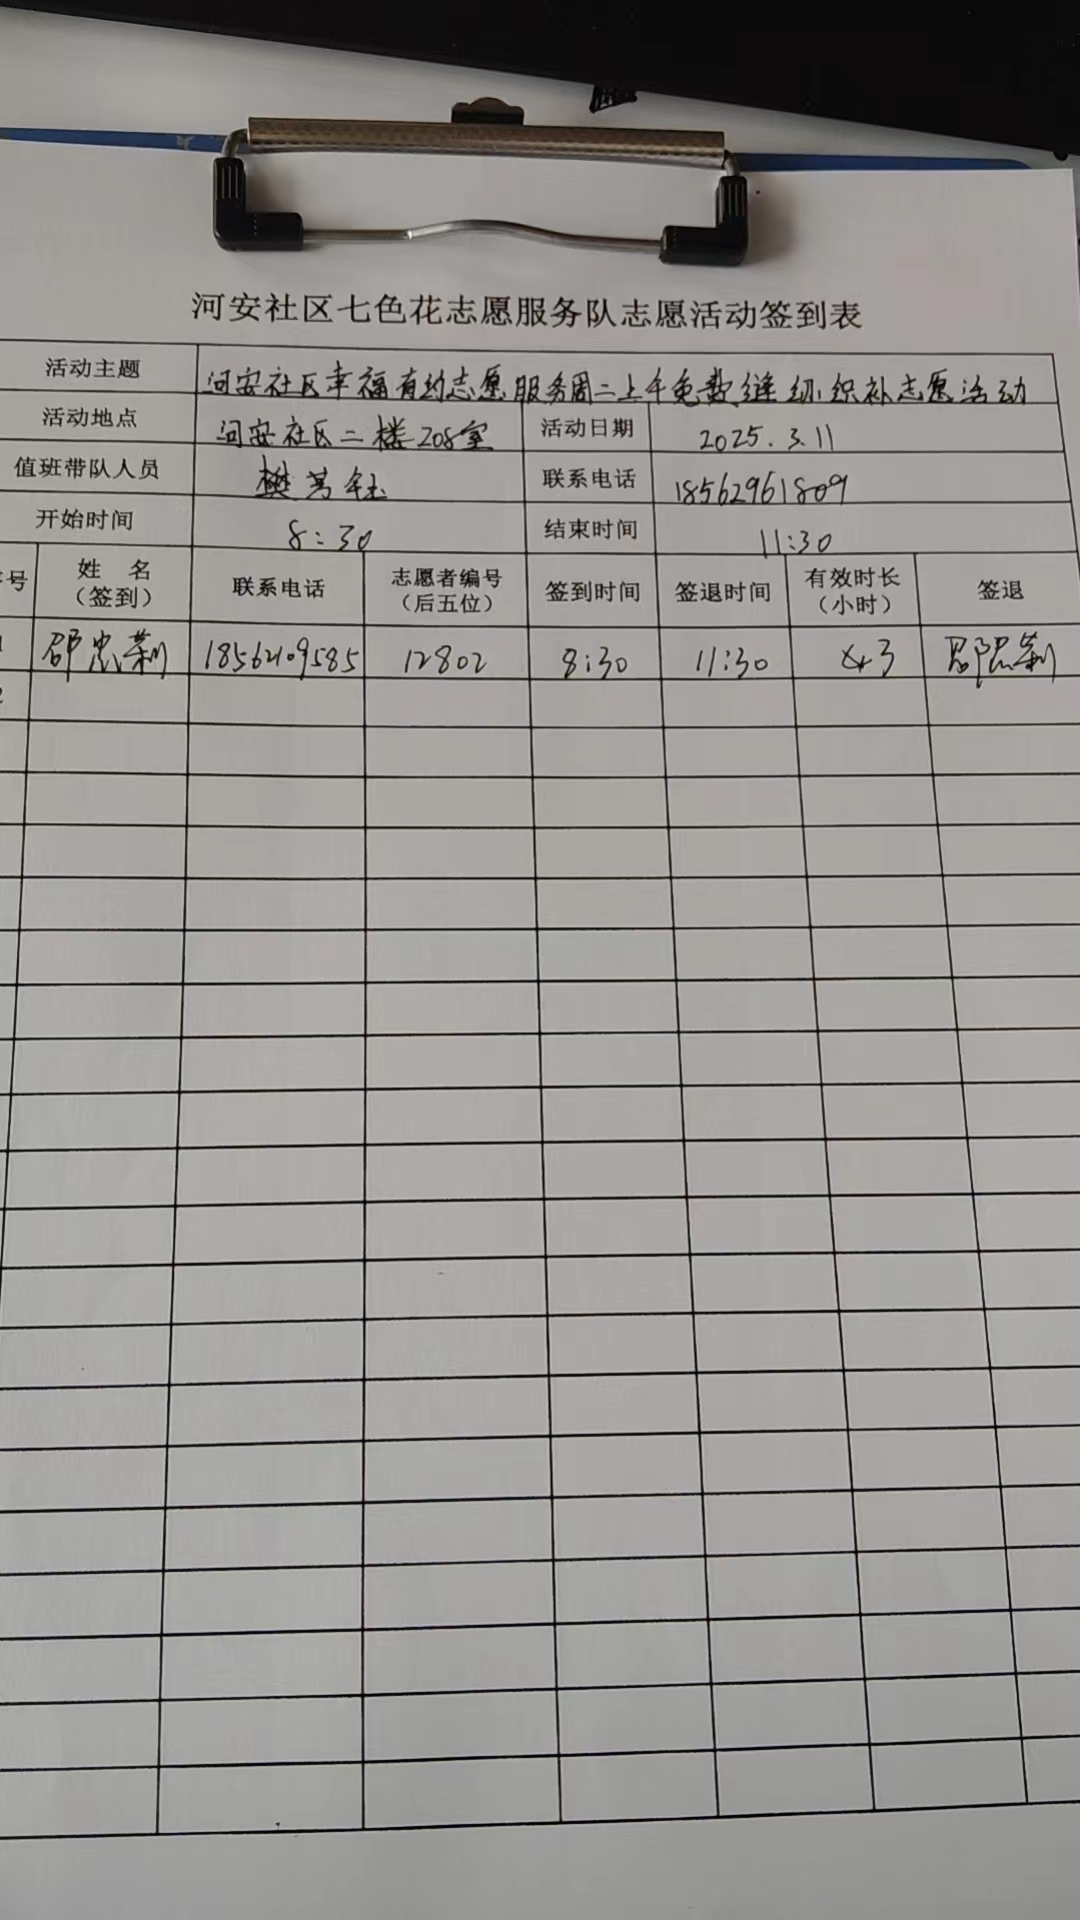 河安社区七色花志愿服务队志愿活动签到表
活动主题 河安社区幸福有约志愿服务周二上午免费缝纫织补志愿活动
活动地点 河安社区二楼208室 活动日期 2025.3.11
值班带队人员 樊 钰 联系电话 18562961809
开始时间 8:30 结束时间 11:30
号 姓 名（签到） 联系电话 志愿者编号（后五位） 签到时间 签退时间 有效时长（小时） 签退
1 邵忠莉 18562109585 12802 8:30 11:30 3 邵忠莉
2